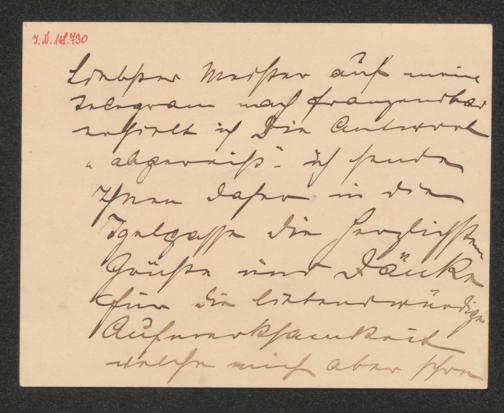 I.N. 118.730
Liebster Meister auf mein
Telegram nach Franzensbad
erhielt ich die Antwort
„abgereist“. ich sende
Ihnen daher in die
Igelgasse die herzlichsten
Grüße und Danke
für die liebenswürdige
Aufmerksamkeit
welche mich aber schon